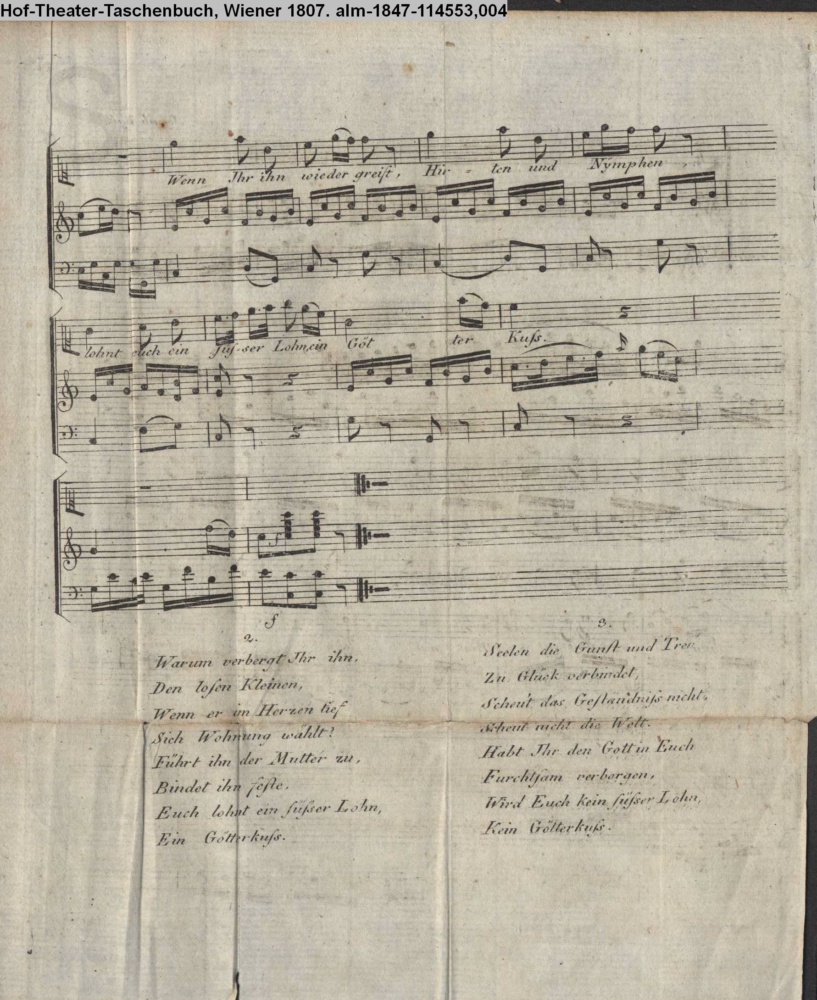 Hof-Theater-Taschenbuch, Wiener 1807. alm-1847-114553,004
Wenn Ihr ihn wieder greift, Hir - ten und Nymphen,
lohnt euch ein süſ-ser Lohn, ein Göt ter Kuſs.
f
f
2.
Warum verbergt Ihr ihn,
Den loſen Kleinen,
Wenn er im Herzen tief
Sich Wohnung wählt?
Führt ihn der Mutter zu,
Bindet ihn feſte.
Euch lohnt ein ſüſser Lohn,
Ein Götterkuſs.
3.
Seelen die Gunſt und Treu
Zu Glück verbindet,
Scheut das Geſtändniſs nicht,
Scheut nicht die Welt.
Habt Ihr den Gott in Euch
Furchtſam verborgen,
Wird Euch kein ſüſser Lohn,
Kein Götterkuſs.